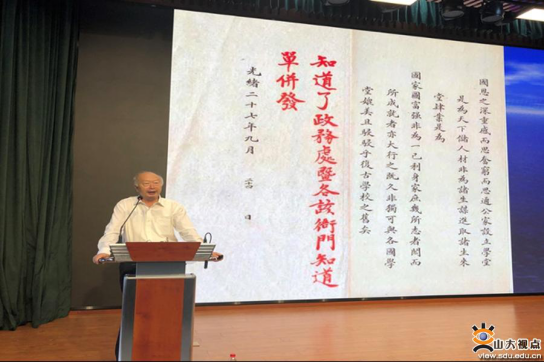 國恩之深重感而思奮窮而思通公家設立學堂
是為天下儲人材非為諸生謀進取諸生來
堂肄業是為
國家圖富強非為一己利身家庶幾所志者闊而
所成就者亦大行之既久非獨可與各國學
堂媲美且駸駸乎復古學校之舊矣
知道了政務處暨各該衙門知道
單併發
光緒二十七年九月 日
山大视点
www.view.sdu.edu.cn